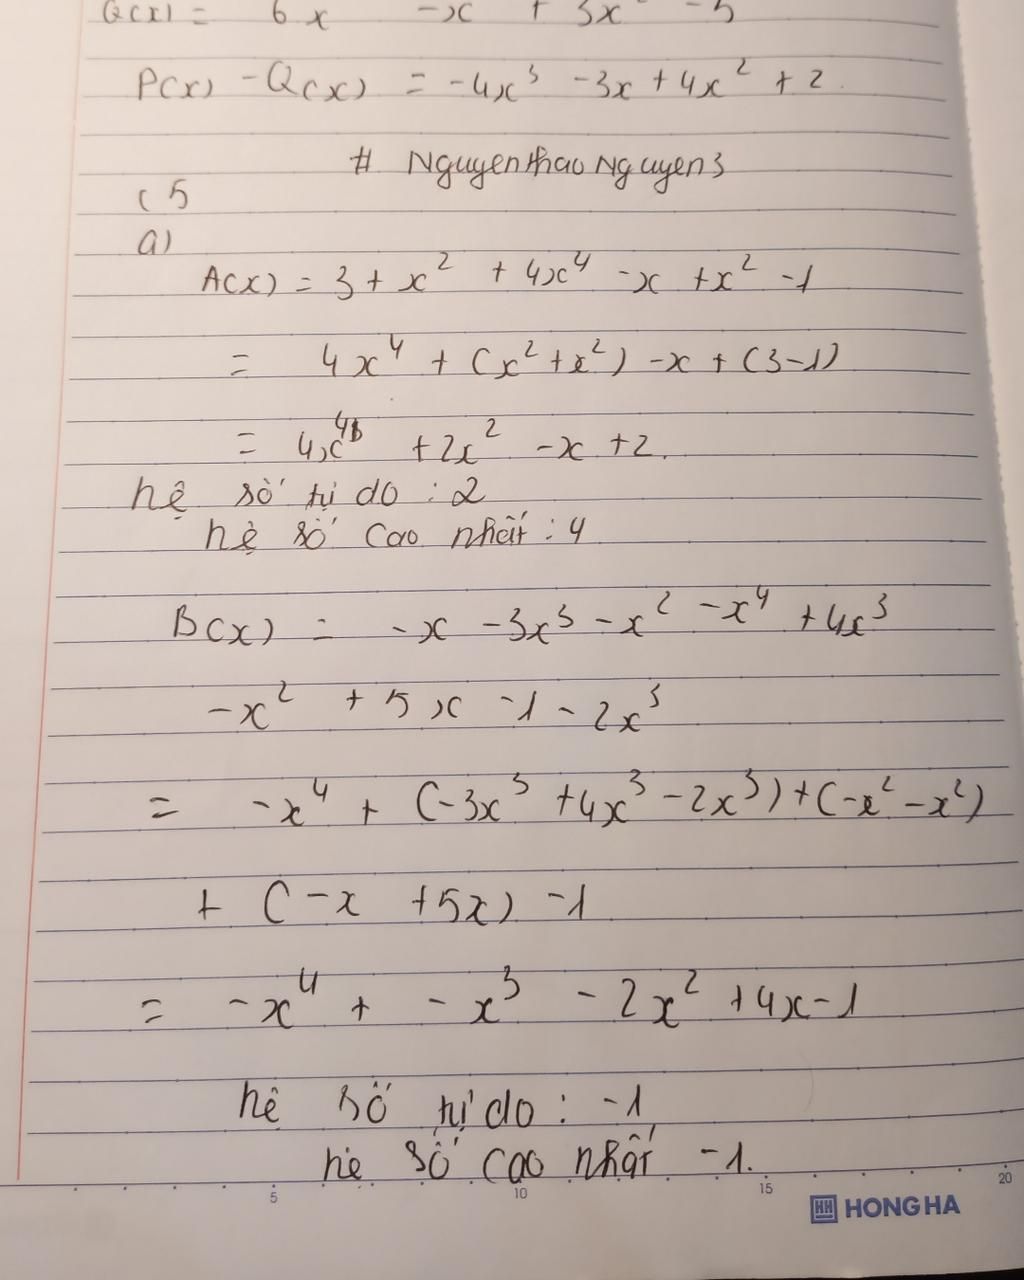 Q(x) = 6x -x + 3x² -5
P(x) - Q(x) = -4x³ -3x + 4x² + 2
# Nguyenthao Nguyen3
(5
a)
A(x) = 3 + x² + 4x⁴ -x + x² -1
= 4x⁴ + (x² + x²) -x + (3-1)
= 4x⁴ + 2x² -x + 2.
hệ số tự do : 2
hệ số cao nhất : 4
B(x) = -x -3x³ -x² -x⁴ + 4x³
-x² + 5x -1 - 2x³
= -x⁴ + (-3x³ + 4x³ - 2x³) + (-x² - x²)
+ (-x + 5x) -1
= -x⁴ + -x³ - 2x² + 4x - 1
hệ số tự do : -1
hệ số cao nhất -1.
5 10 15 20
HH HONG HA